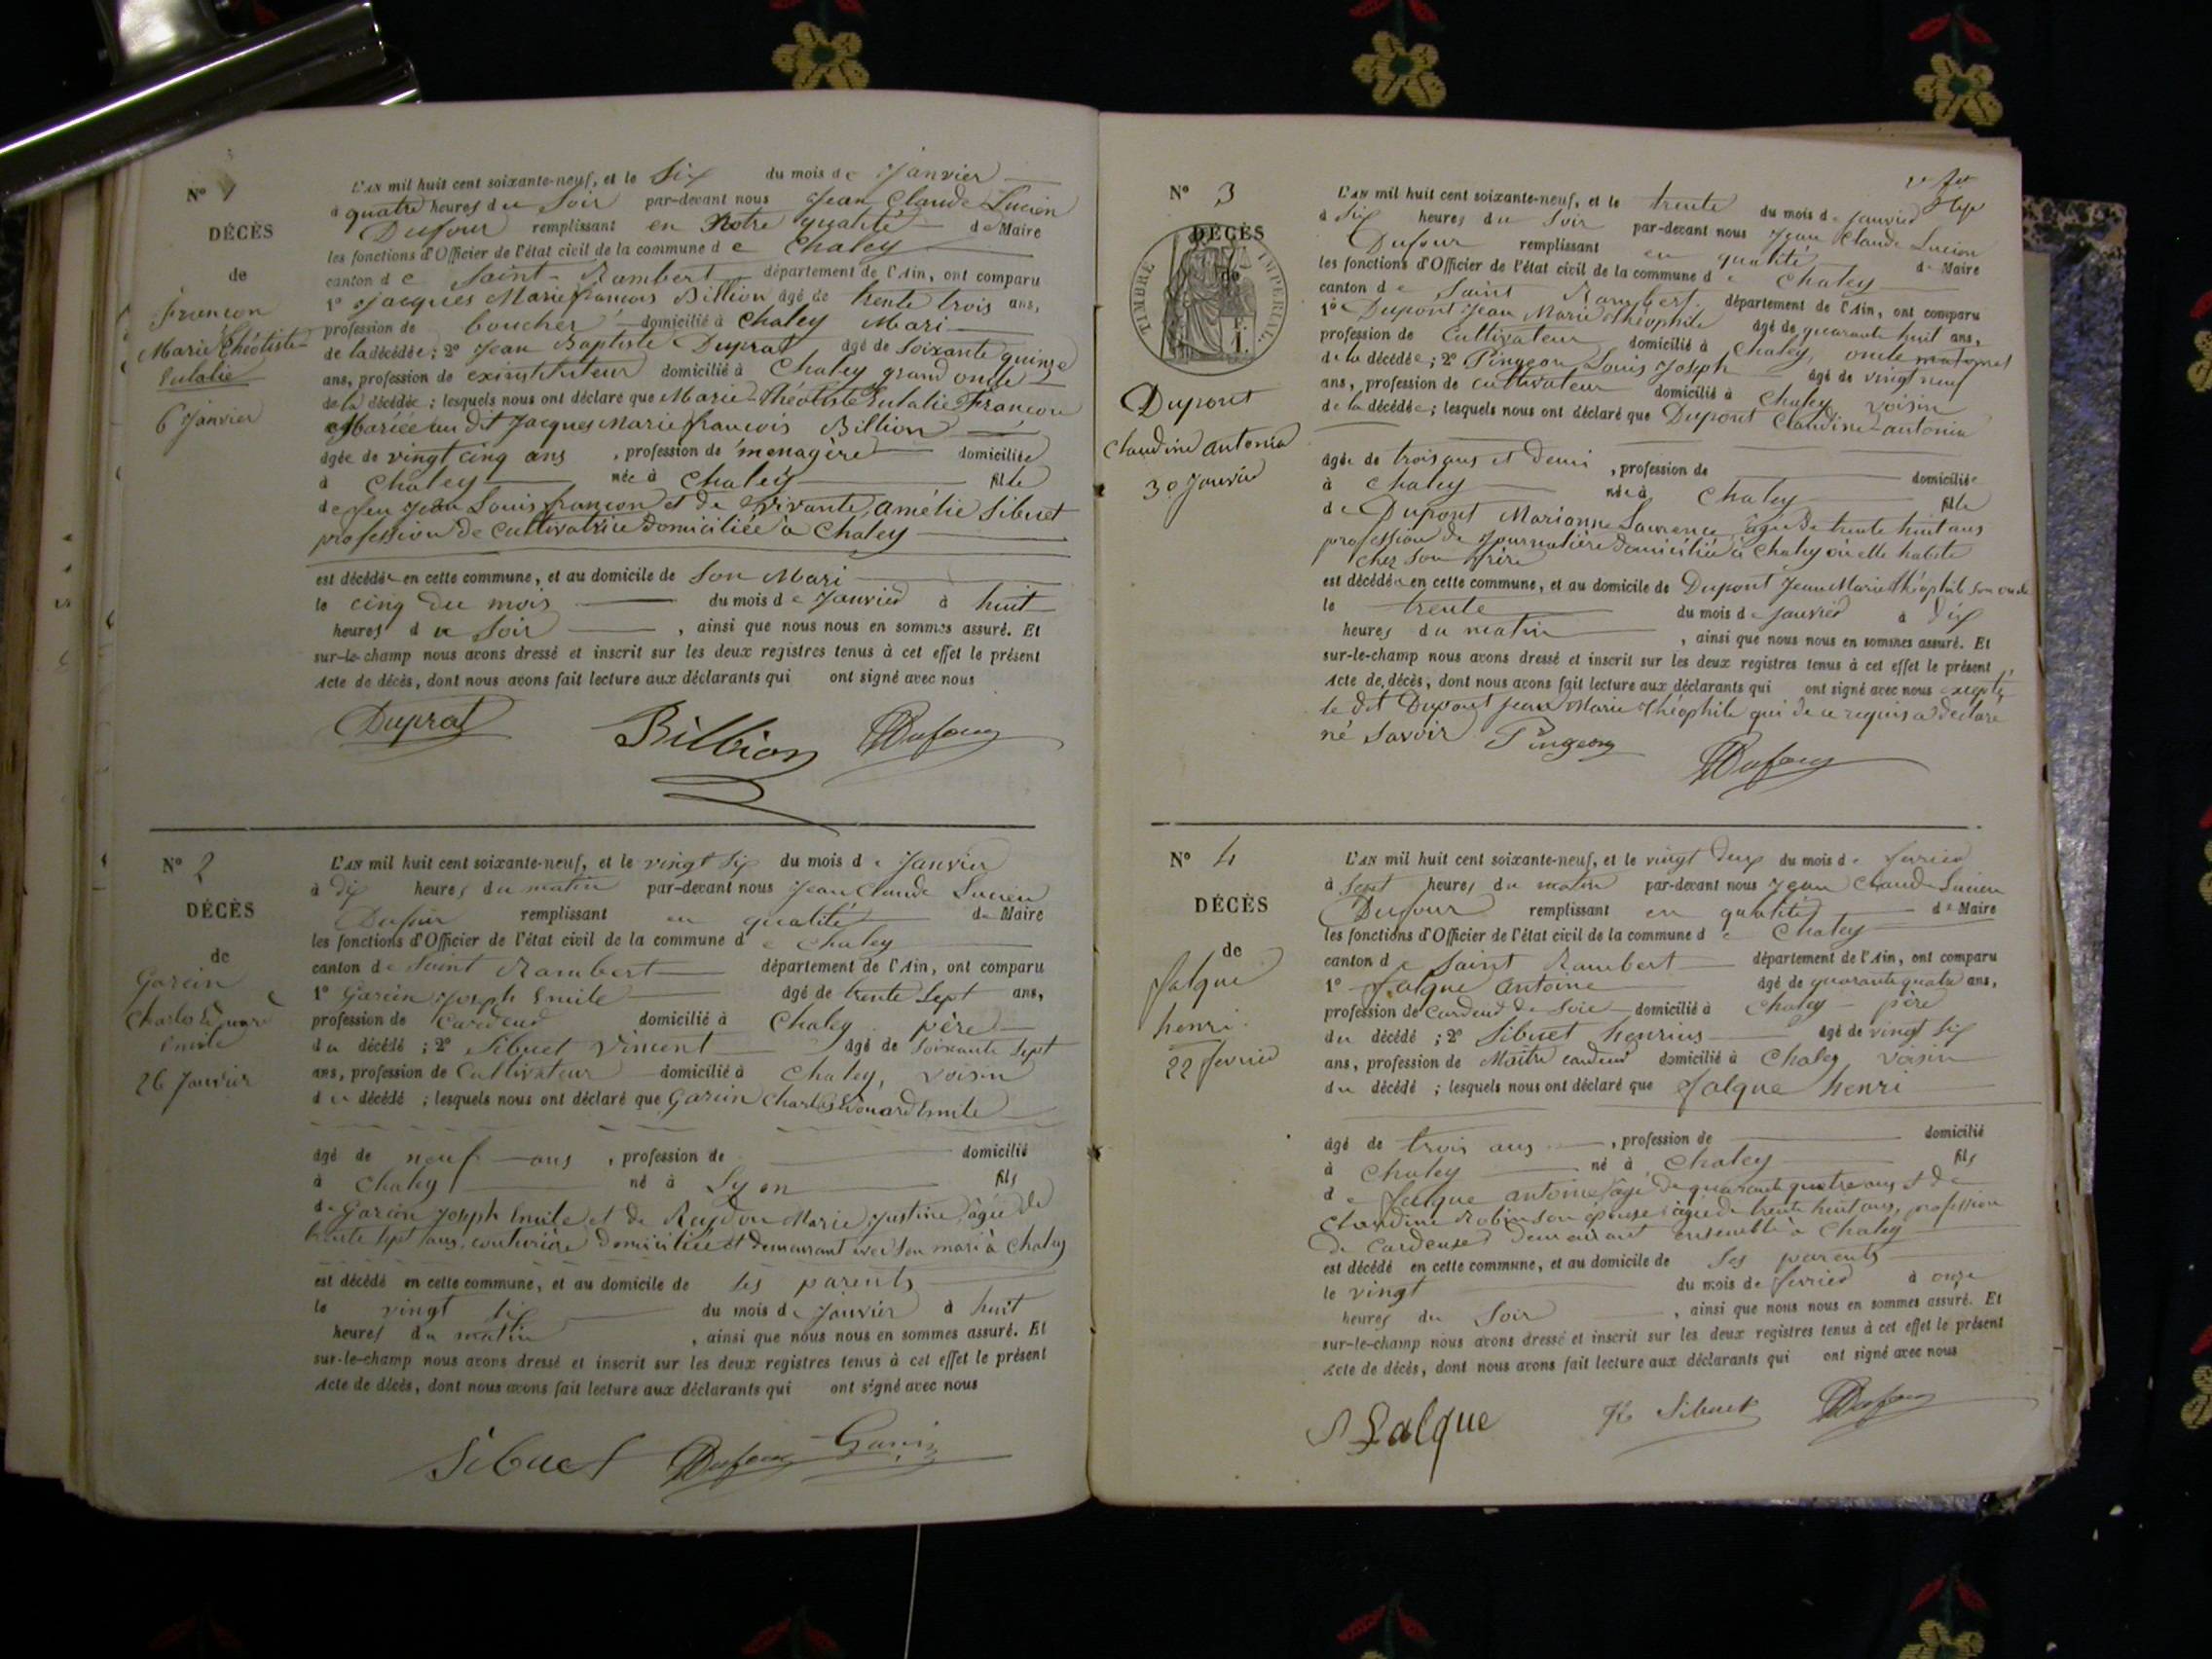 N° 1
DÉCÈS
de
Françon
Marie Théotiste
Eulalie
6 Janvier
L'AN mil huit cent soixante-neuf, et le Six du mois de Janvier
à quatre heures du Soir par-devant nous Jean Claude Lucien
Dufour remplissant en Notre qualité de Maire
les fonctions d'Officier de l'état civil de la commune de Chaley
canton de Saint-Rambert département de l'Ain, ont comparu
1° Jacques Marie françois Billion âgé de trente trois ans,
profession de boucher domicilié à Chaley Mari
de la décédée; 2° Jean Baptiste Duprat âgé de Soixante quinze
ans, profession de exinstituteur domicilié à Chaley grand oncle
de la décédée; lesquels nous ont déclaré que Marie Théotiste Eulalie Françon
Mariée au dit Jacques Marie françois Billion
âgée de vingt cinq ans, profession de menagère domiciliée
à Chaley née à Chaley fille
de feu Jean Louis françon et de vivante, amélie Sibuet
profession de cultivatrice domiciliée à Chaley
est décédée en cette commune, et au domicile de Son Mari
le cinq du mois du mois de Janvier à huit
heures du Soir, ainsi que nous nous en sommes assuré. Et
sur-le-champ nous avons dressé et inscrit sur les deux registres tenus à cet effet le présent
Acte de décès, dont nous avons fait lecture aux déclarants qui ont signé avec nous
Duprat Billion Dufour
N° 2
DÉCÈS
de
Garcin
Charles Edouard
Emile
26 Janvier
L'AN mil huit cent soixante-neuf, et le vingt Six du mois de Janvier
à dix heures du matin par-devant nous Jean Claude Lucien
Dufour remplissant en qualité de Maire
les fonctions d'Officier de l'état civil de la commune de Chaley
canton de Saint Rambert département de l'Ain, ont comparu
1° Garcin Joseph Emile âgé de trente Sept ans,
profession de Cardeur domicilié à Chaley père
du décédé; 2° Sibuet Vincent âgé de Soixante Sept
ans, profession de Cultivateur domicilié à Chaley, voisin
du décédé; lesquels nous ont déclaré que Garcin Charles Edouard Emile
âgé de neuf ans, profession de domicilié
à Chaley né à Lyon fils
de Garcin Joseph Emile et de Marie Justine, âgée de
trente Sept ans, couturière domiciliée et demeurant avec Son mari à Chaley
est décédé en cette commune, et au domicile de Ses parents
le vingt Six du mois de Janvier à huit
heures du matin, ainsi que nous nous en sommes assuré. Et
sur-le-champ nous avons dressé et inscrit sur les deux registres tenus à cet effet le présent
Acte de décès, dont nous avons fait lecture aux déclarants qui ont signé avec nous
Sibuet Dufour Garcin
N° 3
DÉCÈS
de
TIMBRE IMPERIAL
Dupont
Claudine antonia
30 Janvier
L'AN mil huit cent soixante-neuf, et le trente du mois de Janvier
à Six heures du Soir par-devant nous Jean Claude Lucien
Dufour remplissant en qualité de Maire
les fonctions d'Officier de l'état civil de la commune de Chaley
canton de Saint Rambert département de l'Ain, ont comparu
1° Dupont Jean Marie théophile âgé de quarante huit ans,
profession de Cultivateur domicilié à Chaley, oncle maternel
de la décédée; 2° Pingeon Louis Joseph âgé de vingt neuf
ans, profession de cultivateur domicilié à Chaley voisin
de la décédée; lesquels nous ont déclaré que Dupont Claudine-antonia
âgée de trois ans et demi, profession de domiciliée
à Chaley née à Chaley fille
de Dupont Marianne Laurence, âgée de trente huit ans
profession de Journalière domiciliée à Chaley où elle habite
chez Son frère
est décédée en cette commune, et au domicile de Dupont Jean Marie théophile Son oncle
le trente du mois de Janvier à dix
heures du matin, ainsi que nous nous en sommes assuré. Et
sur-le-champ nous avons dressé et inscrit sur les deux registres tenus à cet effet le présent
Acte de décès, dont nous avons fait lecture aux déclarants qui ont signé avec nous excepté
le dit Dupont Jean Marie théophile qui de ce requis a déclaré
ne Savoir Pingeon Dufour
N° 4
DÉCÈS
de
falque
henri
22 fevrier
L'AN mil huit cent soixante-neuf, et le vingt deux du mois de fevrier
à Sept heures du matin par-devant nous Jean Claude Lucien
Dufour remplissant en qualité de Maire
les fonctions d'Officier de l'état civil de la commune de Chaley
canton de Saint Rambert département de l'Ain, ont comparu
1° falque antoine âgé de quarante quatre ans,
profession de Cardeur de Soie domicilié à Chaley père
du décédé; 2° Sibuet henrius âgé de vingt Six
ans, profession de Maître cardeur domicilié à Chaley voisin
du décédé; lesquels nous ont déclaré que falque henri
âgé de trois ans, profession de domicilié
à Chaley né à Chaley fils
de falque antoine âgé de quarante quatre ans et de
Claudine Robin Son épouse âgée de trente huit ans, profession
de Cardeuse demeurant ensemble à Chaley
est décédé en cette commune, et au domicile de Ses parents
le vingt du mois de fevrier à onze
heures du Soir, ainsi que nous nous en sommes assuré. Et
sur-le-champ nous avons dressé et inscrit sur les deux registres tenus à cet effet le présent
Acte de décès, dont nous avons fait lecture aux déclarants qui ont signé avec nous
Falque Sibuet Dufour